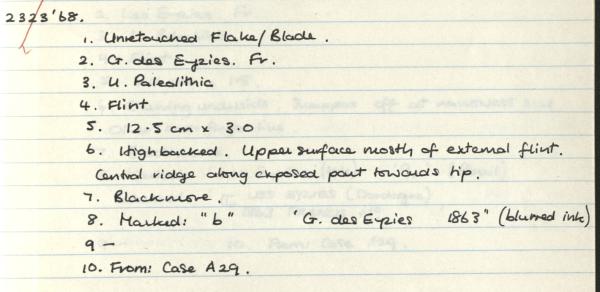 2323'68.
1. Unretouched Flake/Blade.
2. G. des Eyzies. Fr.
3. U. Paleolithic
4. Flint
5. 12.5 cm x 3.0
6. Highbacked. Upper surface mostly of external flint.
Central ridge along exposed part towards tip.
7. Blackmore.
8. Marked: "b" 'G. des Eyzies 1863" (blurred ink)
9 -
10. From: Case A29.